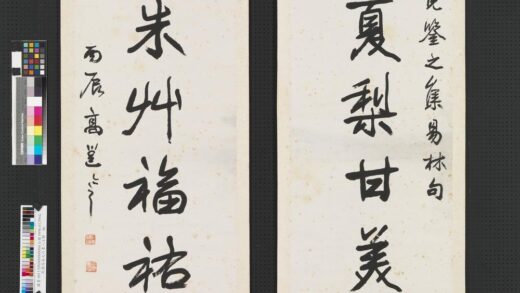 鑒之集易林句
夏梨甘美
朱艸福祐
丙辰高邕